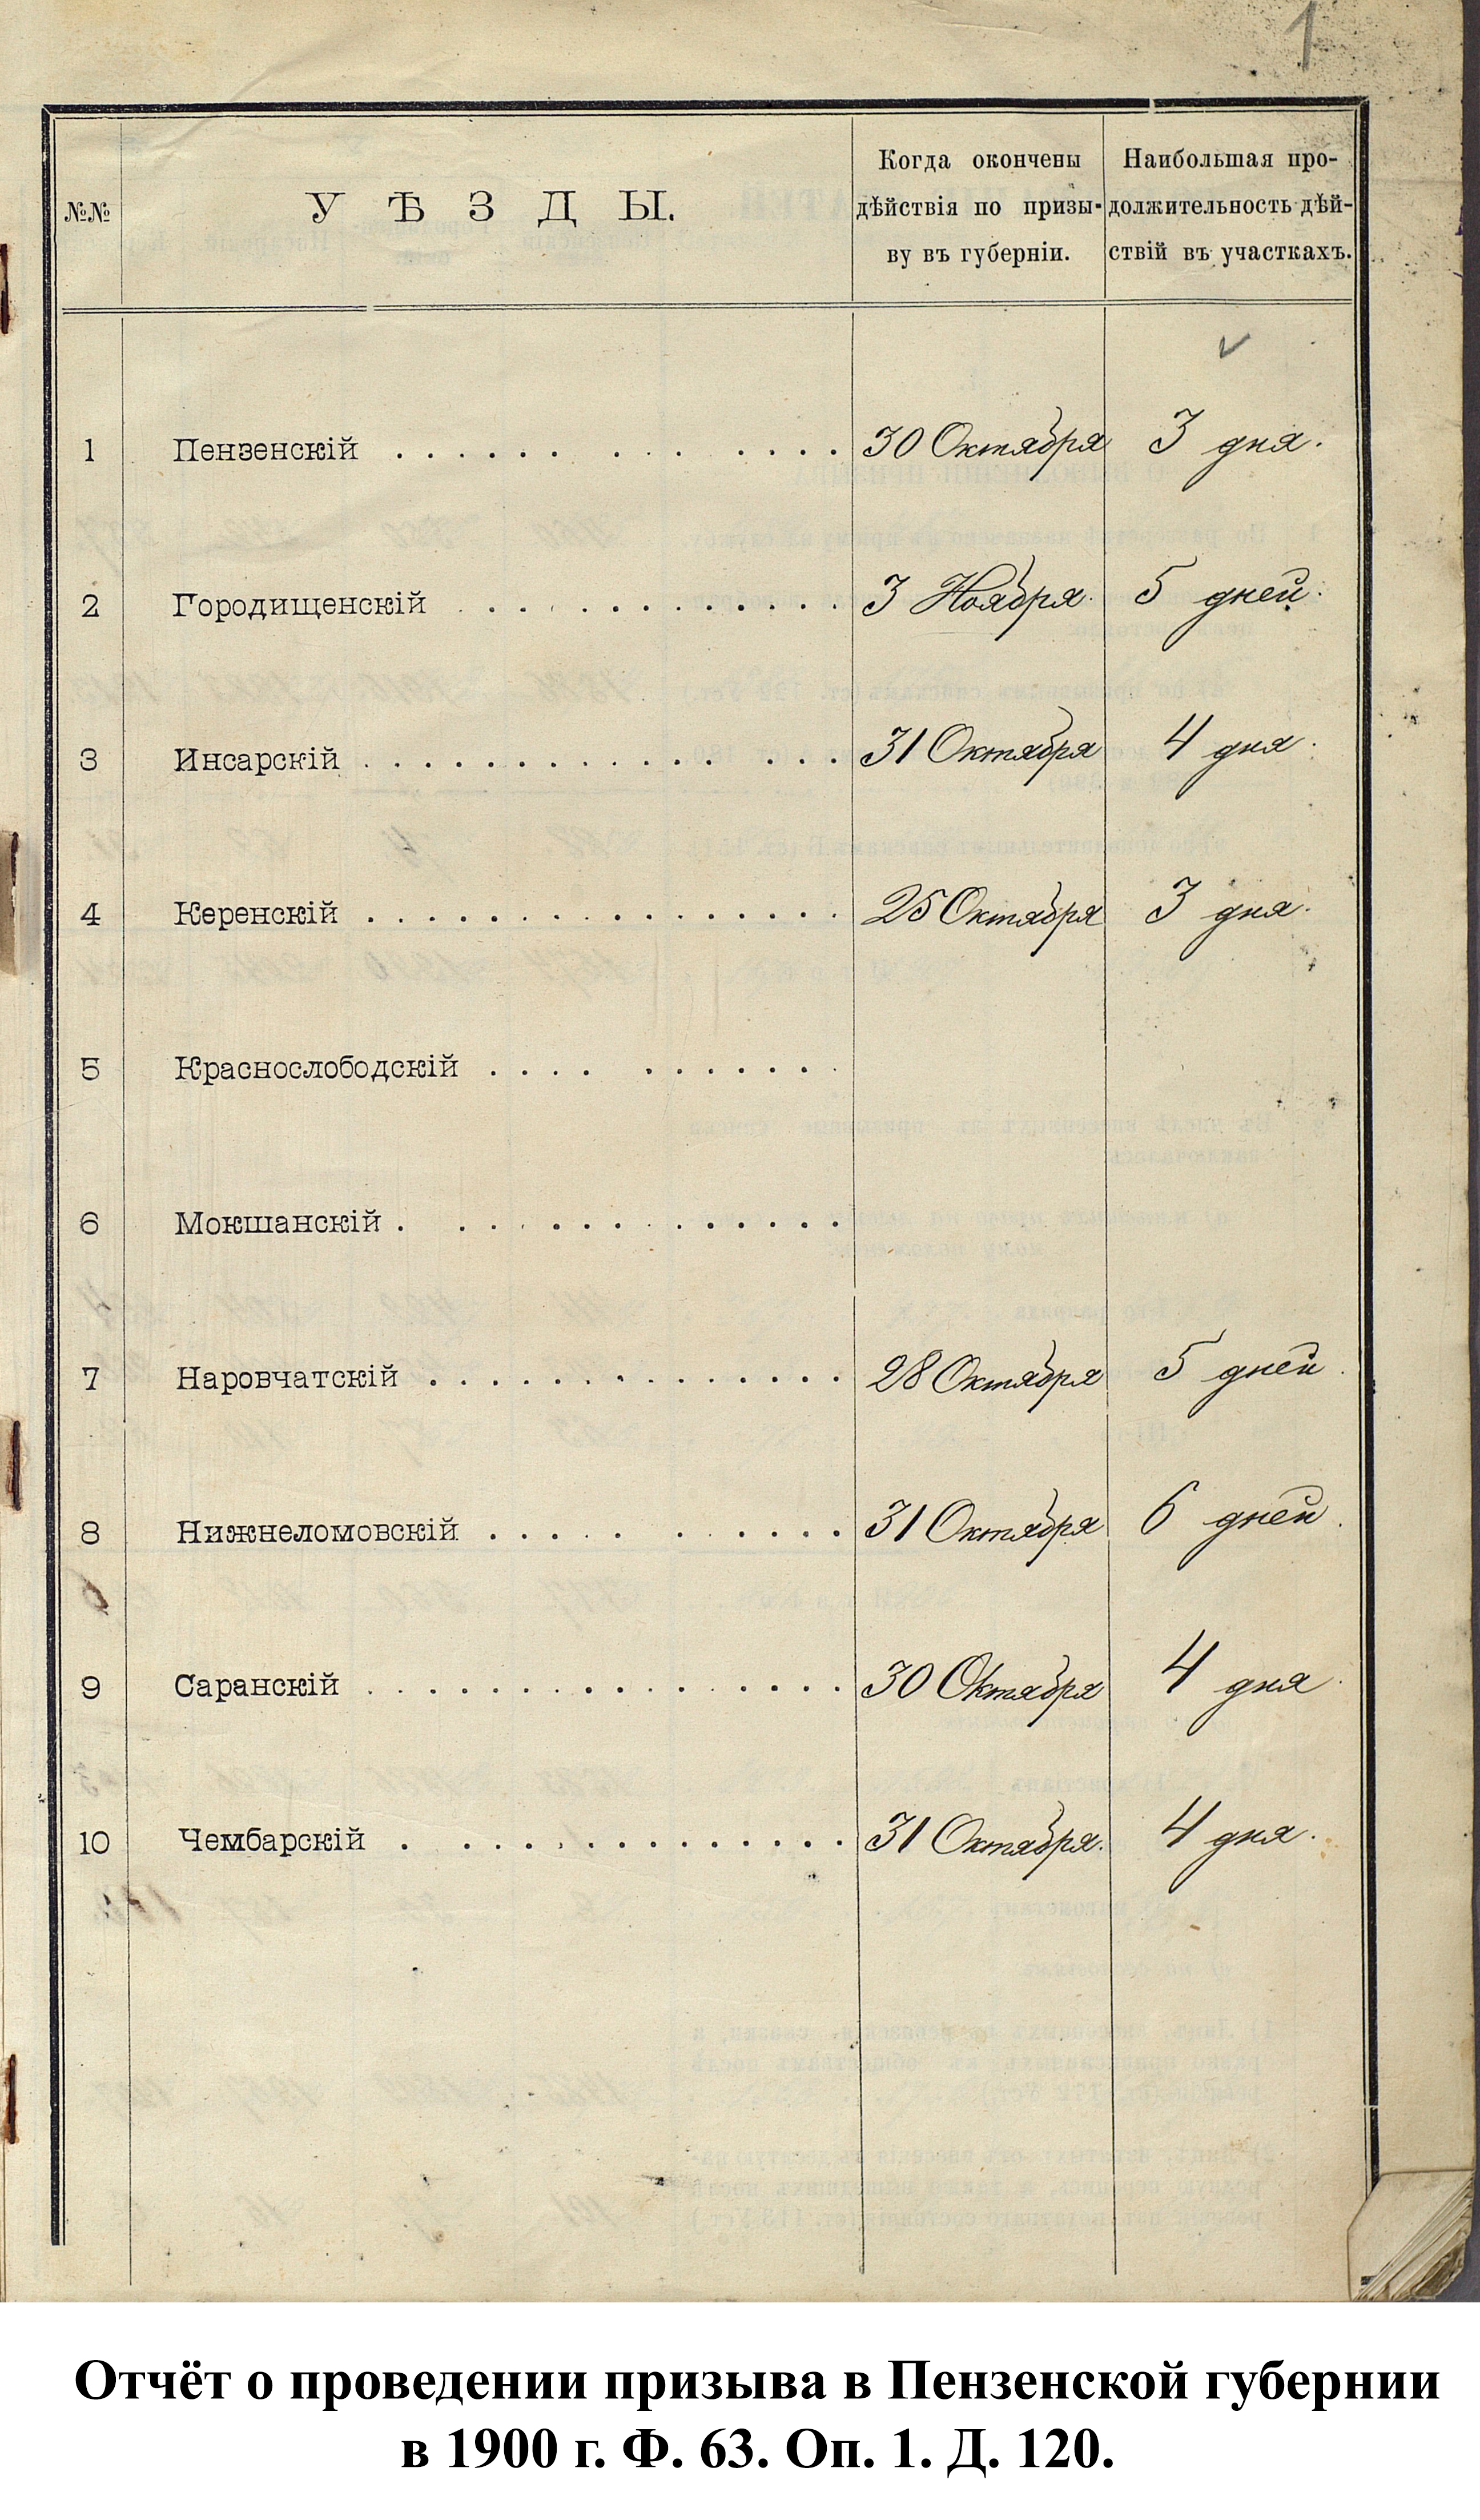 1
№№
УѢЗДЫ.
Когда окончены
дѣйствія по призы-
ву въ губерніи.
Наибольшая про-
должительность дѣй-
ствій въ участкахъ.
1 Пензенскій . . . . . . . . . . . . . 30 Октября 3 дня.
2 Городищенскій . . . . . . . . . . . . . 3 Ноября. 5 дней.
3 Инсарскій . . . . . . . . . . . . . . . 31 Октября 4 дня.
4 Керенскій . . . . . . . . . . . . . . . . 25 Октября 3 дня.
5 Краснослободскій . . . . . . . . . .
6 Мокшанскій . . . . . . . . . . . . . .
7 Наровчатскій . . . . . . . . . . . . . . 28 Октября 5 дней.
8 Нижнеломовскій . . . . . . . . . . 31 Октября 6 дней.
9 Саранскій . . . . . . . . . . . . . . . . 30 Октября 4 дня.
10 Чембарскій . . . . . . . . . . . . . . 31 Октября. 4 дня.
Отчёт о проведении призыва в Пензенской губернии
в 1900 г. Ф. 63. Оп. 1. Д. 120.